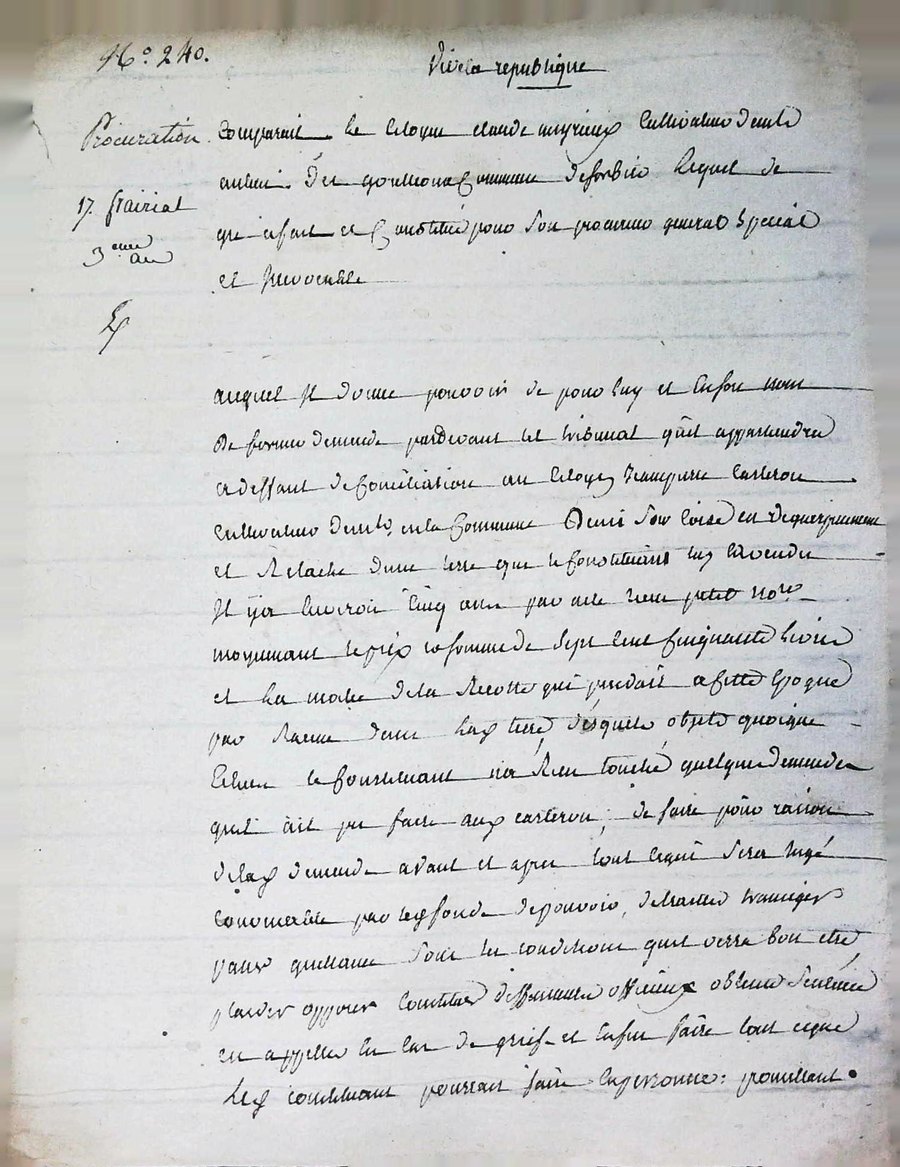 N.° 240.
Vive la republique
Procuration
17. prairial
3.eme an
Comparait le Citoyen claude meyrieux Cultivateur demt
au lieu des Commune de lequel de
gre a fait et Constitué pour son procureur general Special
et Irrevocable
auquel Il donne pouvoir de pour luy et En son nom
De former demande pardevant tel tribunal qu'il appartiendra
a deffaut de Conciliation au Citoyen Jean pierre carteron
Cultivateur demt. en la Commune en deguerpissement
et Relache dune terre que le Constituant luy a vendu
Il y a Environ Cinq ans par acte Reçu petit nore
moyennant le prix et somme de Sept Cent Cinquante Livres
et la moitié de la Recolte qui pendait a Cette Epoque
par Racine dans lad terre desquels objets quoique
Echus le Constituant n'a Rien touché quelques demandes
quil ait pu faire aux carteron; de faire pour raison
de lad demande avant et apres tout ce qui sera Jugé
Convenable par led fondé de pouvoir, de traiter transiger
passer quittance sous les conditions quil verra bon etre
plaider opposer Constituer deffenseurs officieux obtenir Sentence
en appeller En Cas de grief et Enfin faire tout ce que
Led constituant pourrait faire En personne: promettant